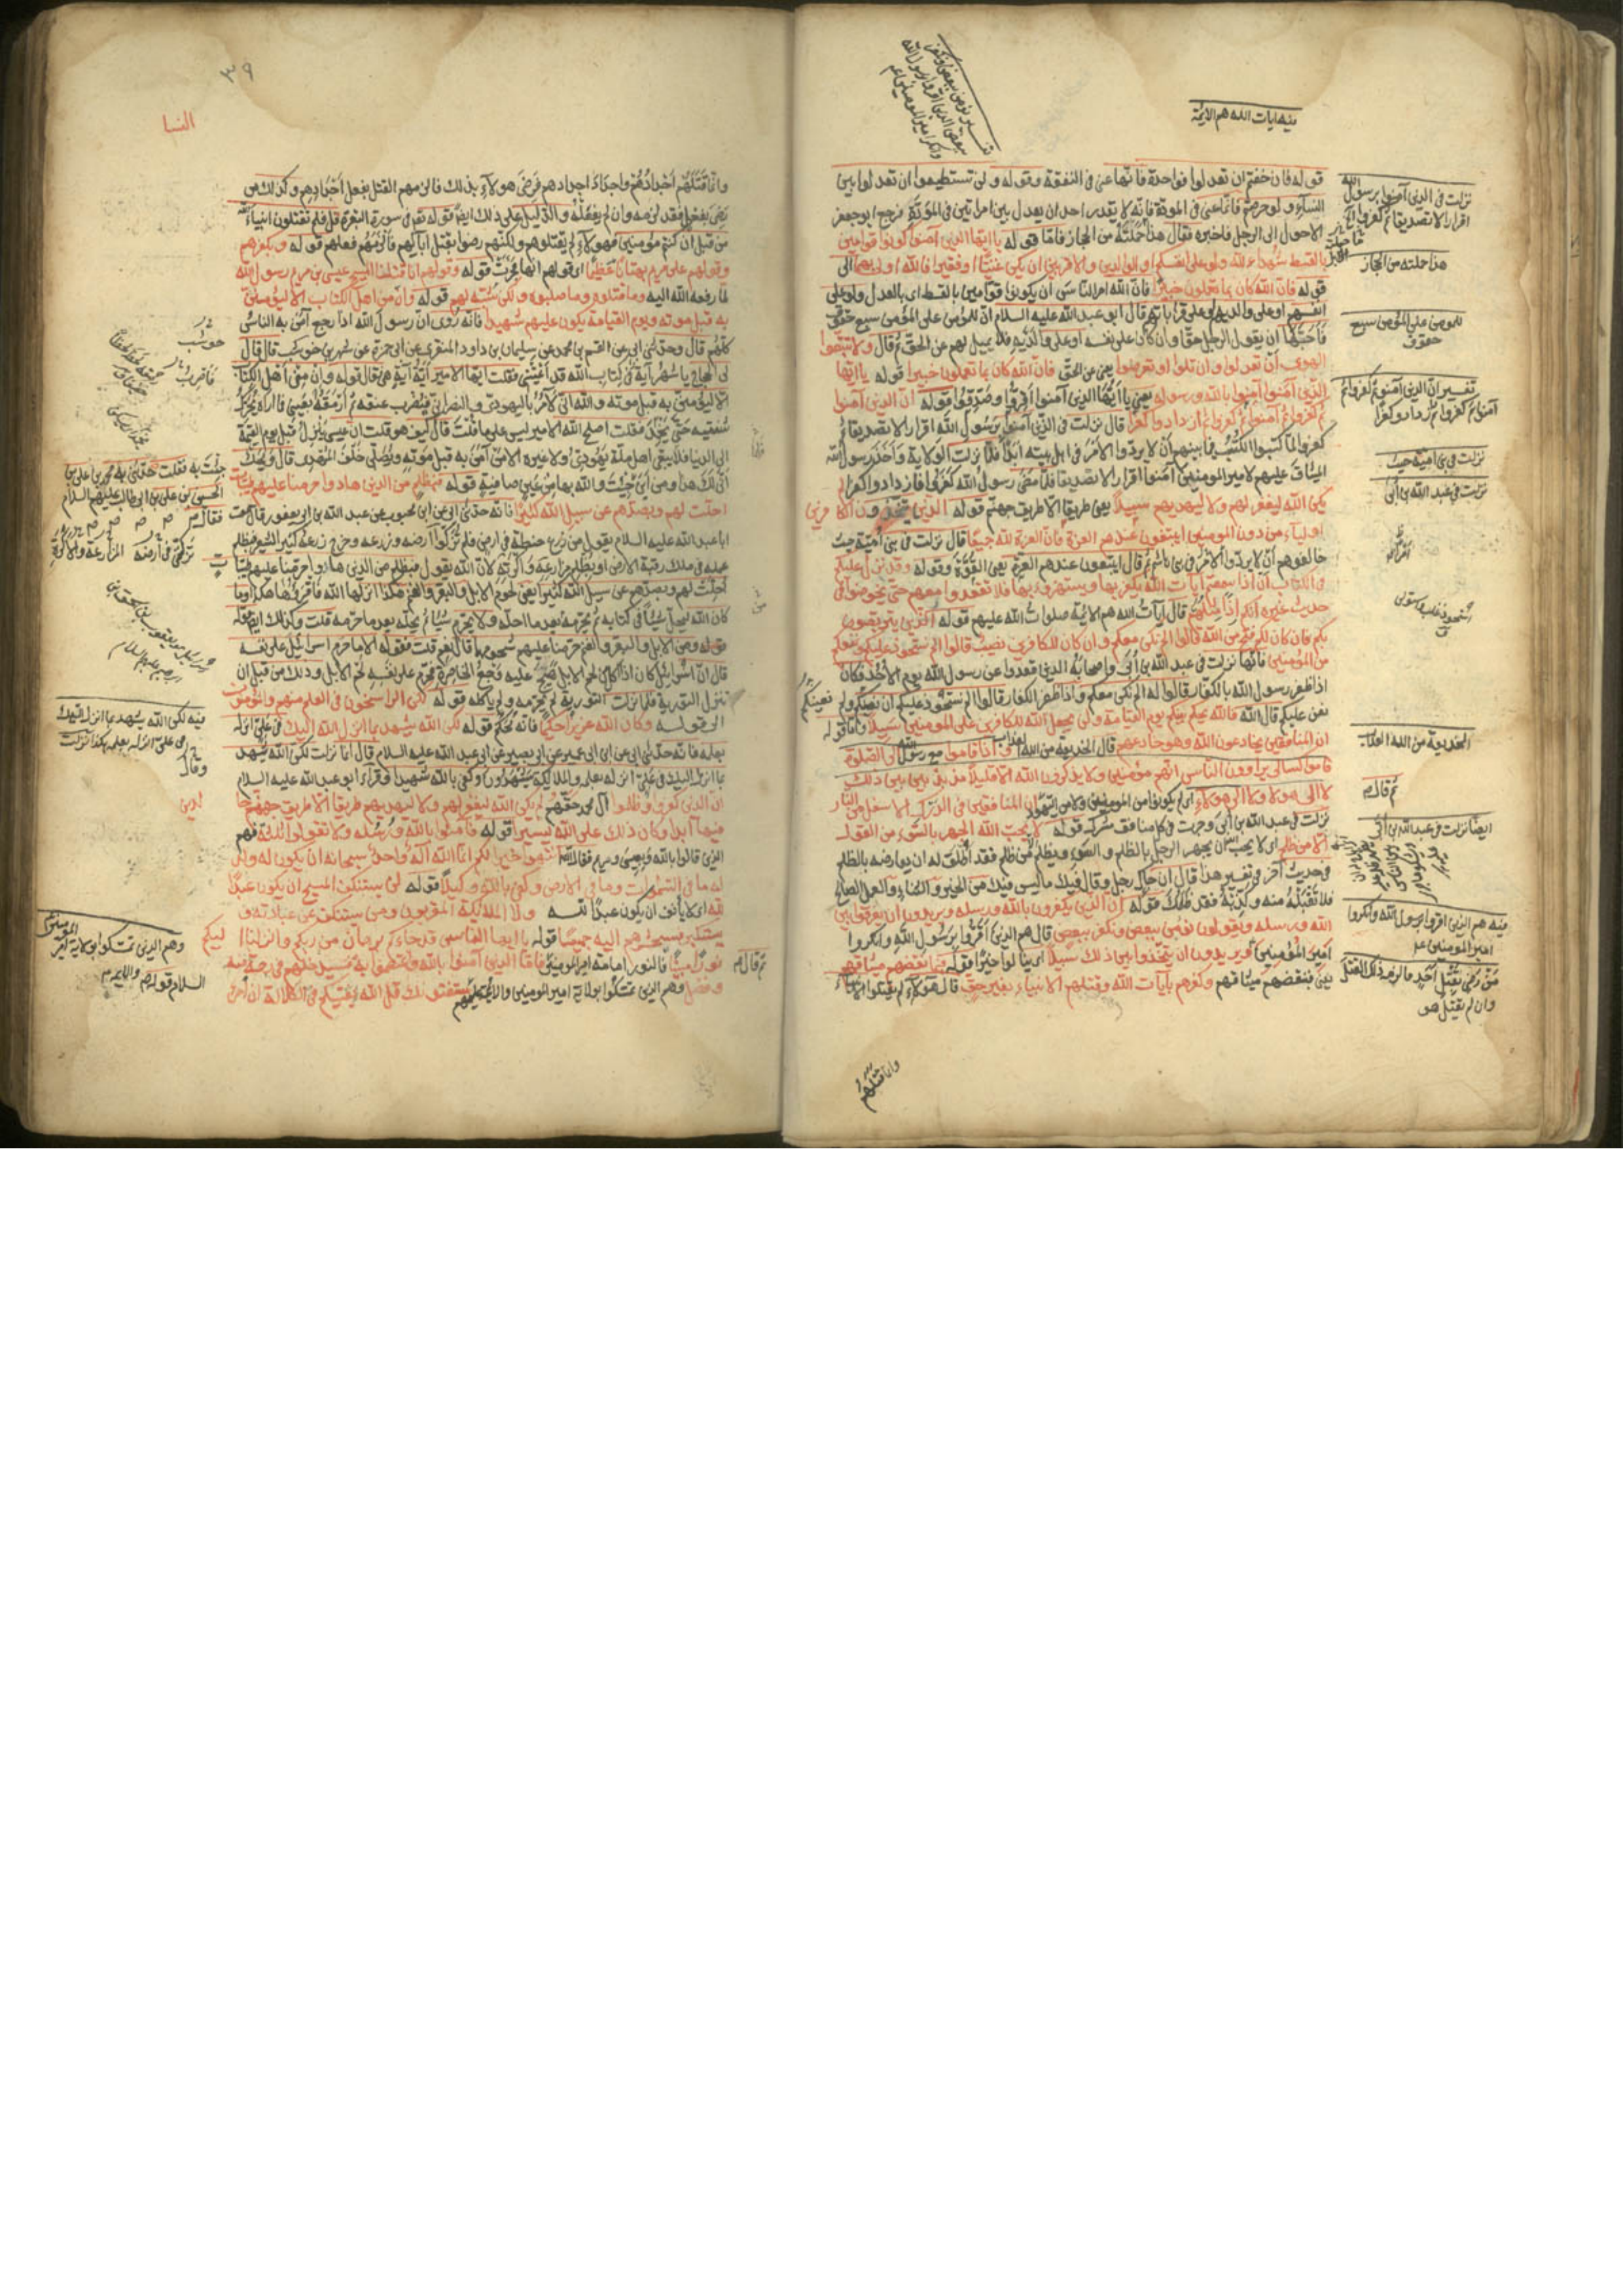 فيه ايات الله هم الائمة
قوله فان خفتم ان تعدلوا فواحدة فانما عنى في النفقة وقوله ولن تستطيعوا ان تعدلوا بين
النساء ولو حرصتم فانما عنى في المودة فانه لا يقدر احد ان يعدل بين امراتين في المودة فرجع ابو جعفر
الاحول الى الرجل فاخبره فقال هذا حملته من الحجاز فاما قوله يا ايها الذين آمنوا كونوا قوامين
بالقسط شهداء لله ولو على انفسكم او الوالدين والاقربين ان يكن غنيا او فقيرا فالله اولى بهما الى
قوله فان الله كان بما تعملون خبيرا فان الله امر الناس ان يكونوا قوامين بالقسط اى بالعدل ولو على
انفسهم او على والديهم او على قراباتهم قال ابو عبد الله عليه السلام ان للمؤمن على المؤمن سبع حقوق
فاحبها ان يقول الرجل حقا وان كان على نفسه او على والديه فلا يميل لهم عن الحق ثم قال ولا تتبعوا
الهوى ان تعدلوا وان تلوا او تعرضوا يعنى عن الحق فان الله كان بما تعملون خبيرا قوله يا ايها
الذين آمنوا آمنوا بالله ورسوله يعنى يا ايها الذين آمنوا اقروا وصدقوا قوله ان الذين آمنوا
ثم كفروا ثم آمنوا ثم كفروا ثم ازدادوا كفرا قال نزلت في الذين آمنوا برسول الله اقرارا لا تصديقا ثم
كفروا لما كتبوا الكتب فيما بينهم ان لا يردوا الامر في اهل بيته ابدا فلما نزلت الولاية واخذ رسول الله
الميثاق عليهم لامير المومنين آمنوا اقرارا لا تصديقا فلما مضى رسول الله كفروا فازدادوا كفرا لم
يكن الله ليغفر لهم ولا ليهديهم سبيلا يعنى طريقا الا طريق جهنم قوله الذين يتخذون الكافرين
اولياء من دون المومنين ايبتغون عندهم العزة فان العزة لله جميعا قال نزلت في بنى امية حيث
خالفوهم ان لا يردوا الامر في بنى هاشم ثم قال ايبتغون عندهم العزة يعنى القوة وقوله وقد نزل عليكم
في الكتاب ان اذا سمعتم ايات الله يكفر بها ويستهزء بها فلا تقعدوا معهم حتى يخوضوا في
حديث غيره انكم اذا مثلهم قال آيات الله هم الائمة صلوات الله عليهم قوله الذين يتربصون
بكم فان كان لكم فتح من الله قالوا الم نكن معكم وان كان للكافرين نصيب قالوا الم نستحوذ عليكم ونمنعكم
من المؤمنين فانها نزلت في عبد الله بن أبى واصحابه الذين قعدوا عن رسول الله يوم الأحد فكان
اذا ظفر رسول الله بالكفار قالوا له الم نكن معكم واذا ظفر الكفار قالوا الم نستحوذ عليكم ان نعينكم ولم
نعن عليكم قال الله فالله يحكم بينكم يوم القيامة ولن يجعل الله للكافرين على المومنين سبيلا واما قوله
ان المنافقين يخادعون الله وهو خادعهم قال الخديعة من الله العذاب قوله اذا قاموا مع رسول الله الى الصلوة
قاموا كسالى يراءون الناس انهم مؤمنين ولا يذكرون الله الا قليلا مذبذبين بين ذلك
لا الى هولاء ولا الى هولاء اى لم يكونوا من المومنين ولا من اليهود ان المنافقين في الدرك الاسفل من النار
نزلت في عبد الله بن أبى وجرت في كل منافق مشرك قوله لا يحب الله الجهر بالسوء من القول
الا من ظلم اى لا يحب الله ان يجهر الرجل بالظلم والسوء ويظلم الا من ظلم فقد اطلق له ان يعارضه بالظلم
في حديث آخر في تفسير هذا قال ان جاءك رجل وقال فيك ما ليس فيك من الخير والثناء والعمل الصالح
فلا تقبله منه وكذبه فقد ظلمك قوله ان الذين يكفرون بالله ورسله ويريدون ان يفرقوا بين
الله ورسله ويقولون نؤمن ببعض ونكفر ببعض قال هم الذين اقروا برسول الله وانكروا
امير المؤمنين ويريدون ان يتخذوا بين ذلك سبيلا اى ينالوا خيرا قوله فبما نقضهم ميثاقهم
يعنى فبنقضهم ميثاقهم وكفرهم بآيات الله وقتلهم الانبياء بغير حق قال هولاء لم يقتلوا الانبياء
وانما قتلهم
نزلت في الذين آمنوا برسول الله
اقرارا لا تصديقا ثم كفروا
هذا حملته من الحجاز
للمومن على المؤمن سبع
حقوق
تفسير ان الذين آمنوا ثم كفروا ثم
آمنوا ثم كفروا ثم ازدادوا كفرا
نزلت في بنى امية حيث
نزلت في عبد الله بن أبى
الخديعة من الله العذاب
ثم قال
ايضا نزلت في عبد الله بن أبى
فيه هم الذين اقروا برسول الله وانكروا
امير المومنين
من رضى بقتل احد فالزمه ذلك القتل
وان لم يقتل هو
٣٩
النسا
وانما قتلهم اجدادهم واجداد اجدادهم فرضى هولاء بذلك فالزمهم القتل بفعل اجدادهم وكذلك من
رضى بفعل فقد لزمه وان لم يفعله والدليل على ذلك ايضا قوله تعالى في سورة البقرة قل فلم تقتلون انبياء الله
من قبل ان كنتم مؤمنين فهولاء لم يقتلوهم ولكنهم رضوا بقتل آبائهم فالزمهم فعلهم قوله وبكفرهم
وقولهم على مريم بهتانا عظيما اى قولهم انها فجرت قوله وقولهم انا قتلنا المسيح عيسى بن مريم رسول الله
لما رفعه الله اليه وما قتلوه وما صلبوه ولكن شبه لهم قوله وان من اهل الكتاب الا ليؤمنن
به قبل موته ويوم القيامة يكون عليهم شهيدا فانه روى ان رسول الله اذا رجع آمن به الناس
كلهم قال وحدثنى ابى عن القسم بن محمد عن سليمان بن داود المنقرى عن ابى حمزة عن شهر بن حوشب قال قال
لى الحجاج يا شهر آية في كتاب الله قد اعيتنى فقلت ايها الامير اية آية هى قال قوله وان من اهل الكتاب
الا ليؤمنن به قبل موته والله انى لآمر باليهودى والنصرانى فيضرب عنقه ثم ارمقه بعينى فما اراه يحرك
شفتيه حتى يخمد فقلت اصلح الله الامير ليس على ما تاولت قال كيف هو قلت ان عيسى ينزل قبل يوم القيمة
الى الدنيا فلا يبقى اهل ملة يهودى ولا غيره الا من آمن به قبل موته ويصلى خلف المهدى قال ويحك
انى لك هذا ومن اين جئت والله بها من عين صافية قوله فبظلم من الذين هادوا حرمنا عليهم طيبات
احلت لهم وبصدهم عن سبيل الله كثيرا فانه حدثنى ابى عن ابن محبوب عن عبد الله بن ابى يعفور قال سمعت
ابا عبد الله عليه السلام يقول من زرع حنطة في ارض فلم تزك ارضه وزرعه وخرج زرعه كثير الشعير فبظلم
عمله في ملك رقبة الارض او بظلم مزارعيه واكرته لان الله يقول فبظلم من الذين هادوا حرمنا عليهم طيبات
احلت لهم وبصدهم عن سبيل الله كثيرا يعنى لحوم الابل والبقر والغنم هكذا انزلها الله فاقرؤها هكذا وما
كان الله ليحل شيئا في كتابه ثم يحرمه بعد ما احله ولا يحرم شيئا ثم يحله بعد ما حرمه قلت وكذلك ايضا
قوله ومن الابل والبقر والغنم حرمنا عليهم شحومهما قال نعم قلت فقوله الا ما حرم اسرائيل على نفسه
قال ان اسرائيل كان اذا اكل من لحم الابل هيج عليه وجع الخاصرة فحرم على نفسه لحم الابل وذلك من قبل ان
تنزل التورية فلما نزلت التورية لم يحرمه ولم ياكله قوله لكن الراسخون في العلم منهم والمؤمنون
الى قوله وكان الله عزيزا حكيما فانه محكم قوله لكن الله يشهد بما انزل الله اليك في على انزله
بعلمه فانه حدثنى ابى عن ابن ابى عمير عن ابى بصير عن ابى عبد الله عليه السلام قال انما نزلت لكن الله يشهد
بما انزل اليك في على انزله بعلمه والملائكة يشهدون وكفى بالله شهيدا وقرأ ابو عبد الله عليه السلام
ان الذين كفروا وظلموا آل محمد حقهم لم يكن الله ليغفر لهم ولا ليهديهم طريقا الا طريق جهنم خالدين
فيها ابدا وكان ذلك على الله يسيرا قوله فآمنوا بالله ورسله ولا تقولوا ثلثة فهم
الذين قالوا بالله وبعيسى ومريم فقال الله انتهوا خيرا لكم انما الله اله واحد سبحانه ان يكون له ولد
له ما في السموات وما في الارض وكفى بالله وكيلا قوله لن يستنكف المسيح ان يكون عبدا
لله اى لا يأنف ان يكون عبدا لله ولا الملائكة المقربون ومن يستنكف عن عبادته و
يستكبر فسيحشرهم اليه جميعا قوله يا ايها الناس قد جاءكم برهان من ربكم وانزلنا اليكم
نورا مبينا فالنور امامة امير المومنين فاما الذين آمنوا بالله واعتصموا به فسيدخلهم في رحمة منه
وفضل وهم الذين تمسكوا بولاية امير المومنين والائمة يستفتونك قل الله يفتيكم في الكلالة ان امرؤ
حوشب
جئت به فقلت حدثنى به محمد بن على بن
الحسين بن على بن ابى طالب عليهم السلام
فقال
فيه لكن الله يشهد بما انزل اليك
في على انزله بعلمه هكذا نزلت
وقال
وهم الذين تمسكوا بولاية امير المومنين
ثم قال